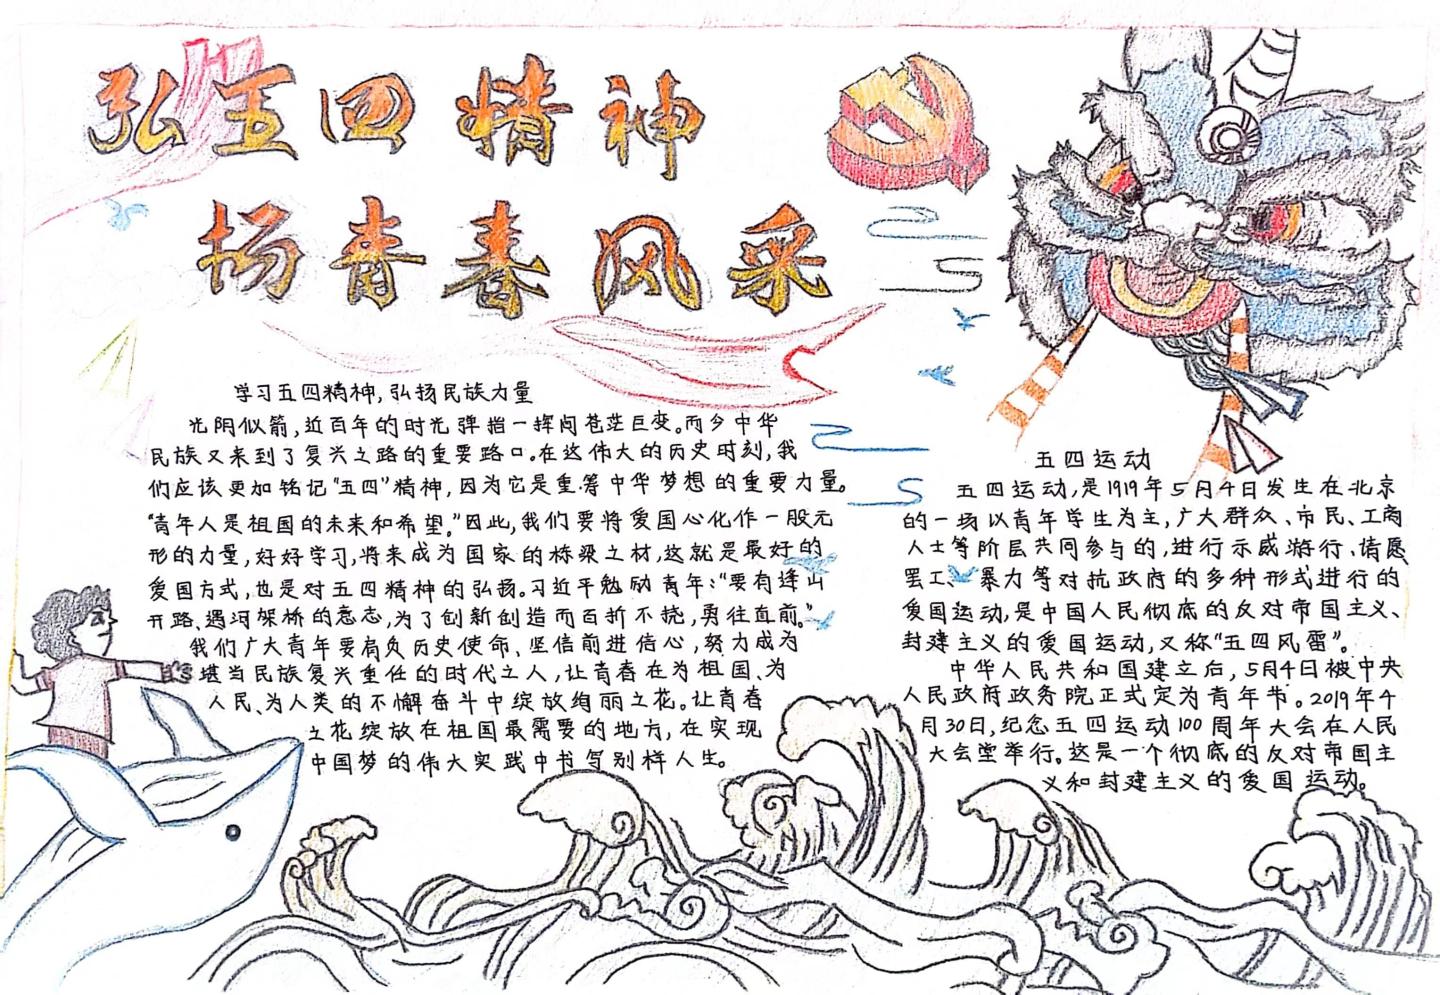 弘五四精神
扬青春风采
学习五四精神,弘扬民族力量
光阴似箭,近百年的时光弹指一挥间苍茫巨变。而今中华
民族又来到了复兴之路的重要路口。在这伟大的历史时刻,我
们应该更加铭记"五四"精神,因为它是重筹中华梦想的重要力量。
"青年人是祖国的未来和希望。"因此,我们要将爱国心化作一股无
形的力量,好好学习,将来成为国家的栋梁之材,这就是最好的
爱国方式,也是对五四精神的弘扬。习近平勉励青年:"要有逢山
开路、遇河架桥的意志,为了创新创造而百折不挠,勇往直前。"
我们广大青年要肩负历史使命、坚信前进信心,努力成为
堪当民族复兴重任的时代之人,让青春在为祖国、为
人民、为人类的不懈奋斗中绽放绚丽之花。让青春
之花绽放在祖国最需要的地方,在实现
中国梦的伟大实践中书写别样人生。
五四运动
五四运动,是1919年5月4日发生在北京
的一场以青年学生为主,广大群众、市民、工商
人士等阶层共同参与的,进行示威游行、请愿、
罢工、暴力等对抗政府的多种形式进行的
爱国运动,是中国人民彻底的反对帝国主义、
封建主义的爱国运动,又称"五四风雷"。
中华人民共和国建立后,5月4日被中央
人民政府政务院正式定为青年节。2019年4
月30日,纪念五四运动100周年大会在人民
大会堂举行。这是一个彻底的反对帝国主
义和封建主义的爱国运动。